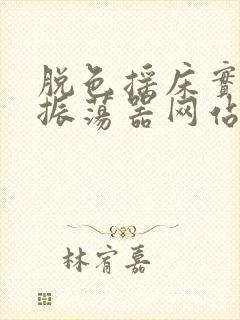 脱色摇床实
振荡器网站
林宥嘉